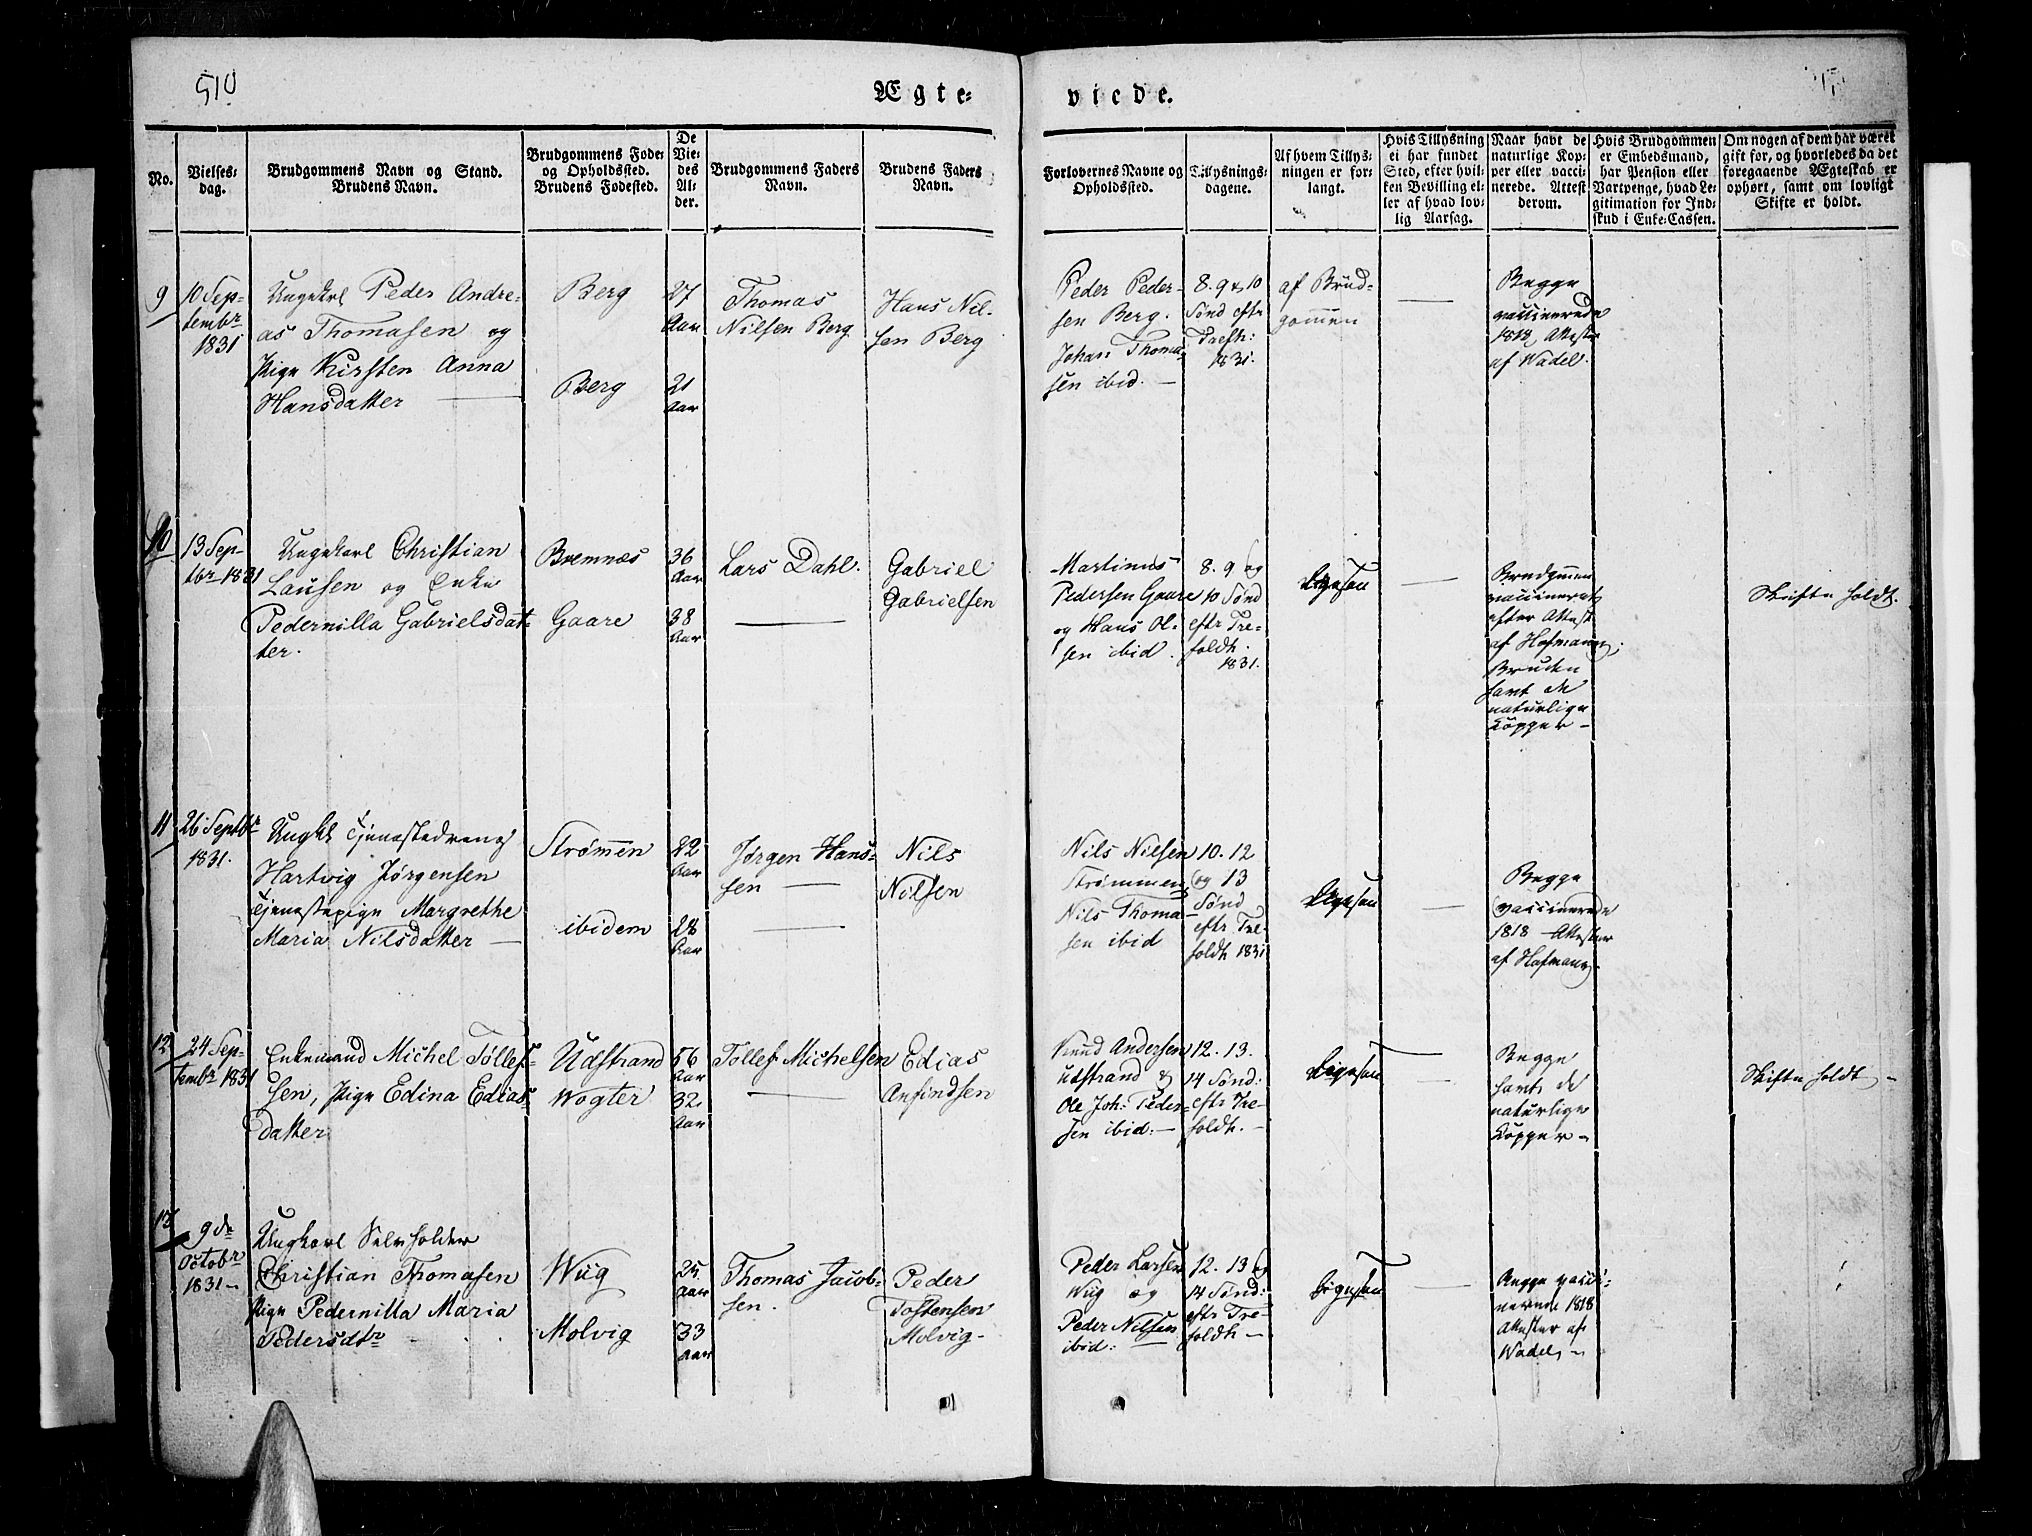 510
Ægte-
viede.
No.
Vielses-
dag.
Brudgommens Navn og Stand.
Brudens Navn.
Brudgommens Føde-
og Opholdssted.
Brudens Fødested.
De
Vie-
des
Al-
der.
Brudgommens Faders
Navn.
Brudens Faders
Navn.
Forlovernes Navne og
Opholdssted.
Tillysnings-
dagene.
Af hvem Tillys-
ningen er for-
langt.
Hvis Tillysning
ei har fundet
Sted, efter hvil-
ken Bevilling el-
ler af hvad lov-
lig Aarsag.
Naar havt de
naturlige Kop-
per eller vacci-
nerede. Attest
derom.
Hvis Brudgommen
er Embedsmand,
har Pension eller
Vartpenge, hvad Le-
gitimation for Ind-
skud i Enke-Cassen.
Om nogen af dem har været
gift før, og hvorledes da det
foregaaende Ægteskab er
ophørt, samt om lovligt
Skifte er holdt.
9
10 Sep-
tembr
1831
Ungekarl Peder Andre-
as Thomasen og
Pige Kirsten Anna
Hansdatter
Berg
Berg
27
Aar
21
Aar
Thomas
Nilsen Berg
Hans Nil-
sen Berg
Peder Peder-
sen Berg.
Johan Thoma-
sen ibid.
8. 9 & 10
Sønd eftr
Trefh:
1831.
af Brud-
gommen
Begge
vaccinerede
1812, Attester
af Wadel.
10
13 Sep-
tbr 1831
Ungekarl Christian
Lausen og Enke
Pedernilla Gabrielsdat-
ter.
Bremnæs
Gaare
36
Aar
38
Aar
Lars Dahl.
Gabriel
Gabrielsen
Martinus
Pedersen Gaare
og Hans Ol-
sen ibid.
8. 9 og
10 Sønd
eftr Tre-
foldh.
1831.
Ligesaa
Brudgommen
vaccineret
efter Attest
af Hofmann,
Bruden
havt de
naturlige
Kopper -
Skifte holdt.
11
26 Septbr
1831.
Ungk Tjenestedreng
Hartvig Jørgensen
Tjenestepige Margrethe
Maria Nilsdatter
Strømmen
ibidem
22
Aar
28
Aar
Jørgen Hans-
sen
Nils
Nilsen
Nils Nilsen
Strømmen
Nils Thoma-
sen ibid
10. 12
og 13
Sønd
eftr Tre-
foldh 1831
Ligesaa
Begge
vaccinerede
1818 Attester
af Hofmann.
12
24 Sep-
tembr 1831
Enkemand Michel Tøllef-
sen, Pige Edina Edias-
datter
Udstrand
Wogter
56
Aar
32.
Aar
Tollef Michelsen
Edias
Anfindsen
Knud Andersen
udstrand &
Ole Joh: Peder-
sen ibid:
12. 13.
14 Sønd:
eftr Tre-
foldh. -
Ligesaa
Begge
havt de
naturlige
Kopper -
Skifte holdt -
13
9de
Octobr
1831 -
Ungkarl Selvholder
Christian Thomasen
Pige Pedernilla Maria
Pedersdtr
Wiig
Molvig
25.
Aar
33
Aar
Thomas Jacob-
sen.
Peder
Tostensen
Molvig -
Peder Larsen
Wiig og
Peder Nilsen
ibid:
12. 13 og
14 Sønd:
eftr Tre-
foldh -
Ligesaa
Begge vacci-
nerede 1818
Attester af
Wadel, -